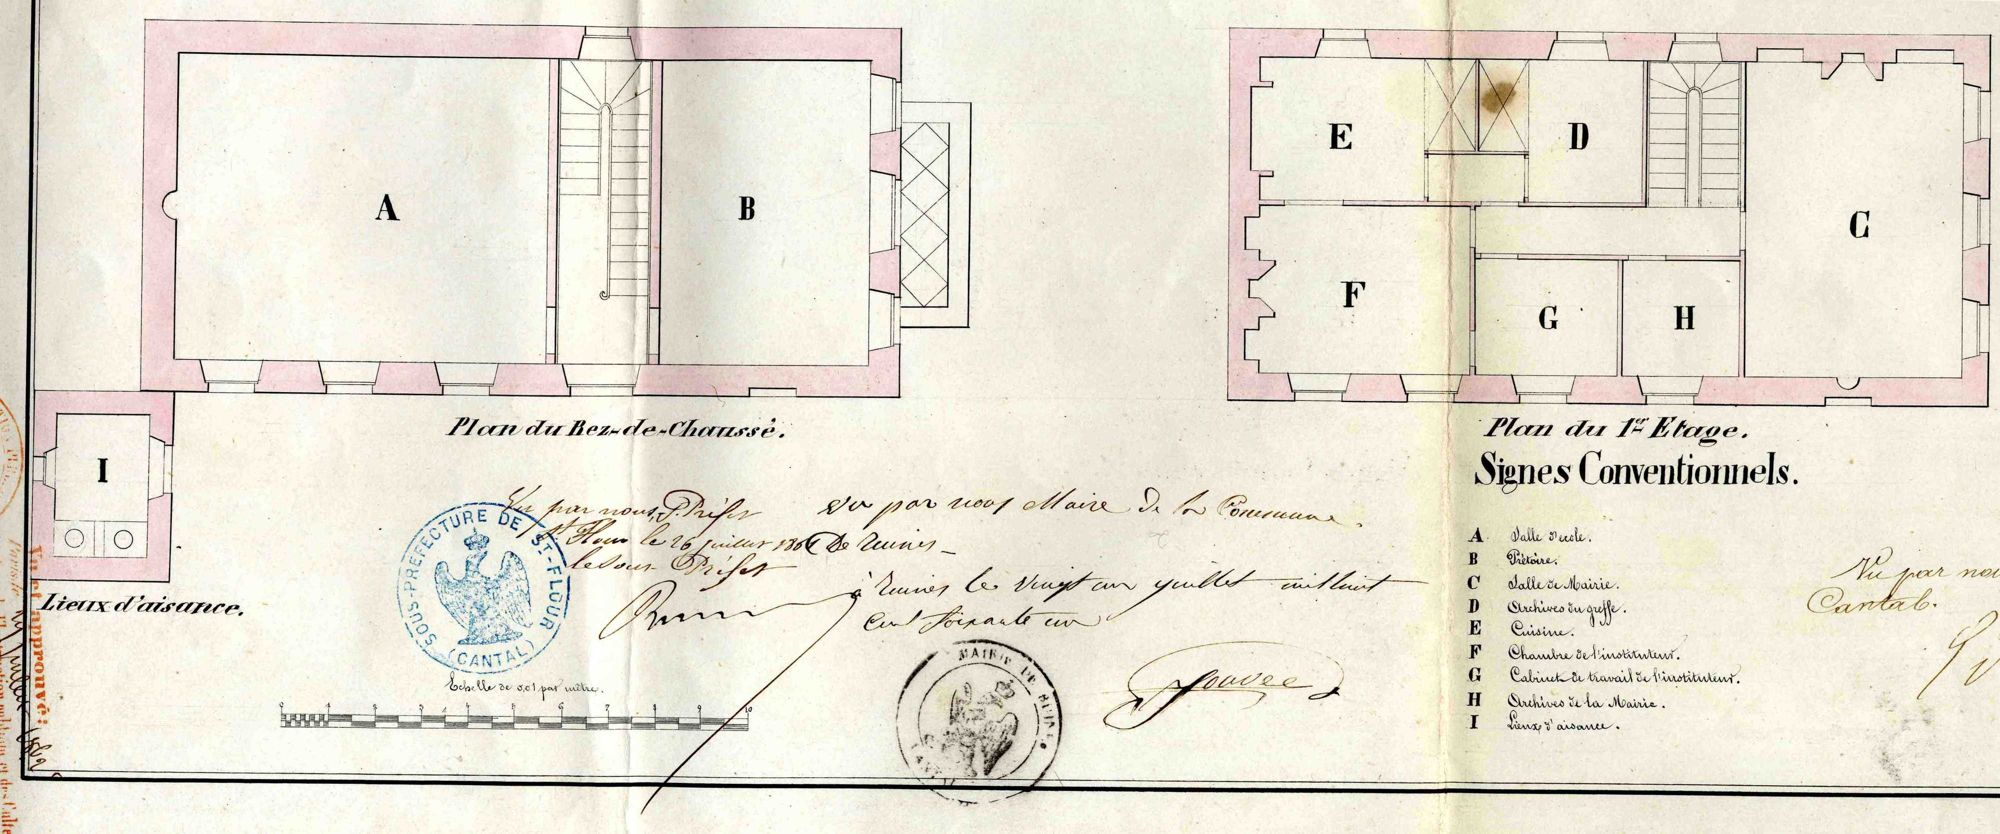 A
B
E
D
C
F
G
H
I
Plan du Rez-de-Chaussé.
Plan du 1er Etage.
Lieux d'aisance.
Signes Conventionnels.
A Salle d'école.
B Prétoire.
C Salle de Mairie.
D Archives du greffe.
E Cuisine.
F Chambre de l'instituteur.
G Cabinet de travail de l'instituteur.
H Archives de la Mairie.
I Lieux d'aisance.
Vu par nous S. Préfet
St Flour le 26 juillet 186
le Sous Préfet
Vu par nous Maire De la Commune
De Ruines
à Ruines le Vingt un juillet mil huit
Cent Soixante un
SOUS-PRÉFECTURE DE ST-FLOUR
(CANTAL)
Echelle de 0,01 par mètre.
1 2 3 4 5 6 7 8 9 10
MAIRIE DE RUINES
CANTAL
Vu par no
Cantal.
Vu et approuvé:
1862
et des Culte